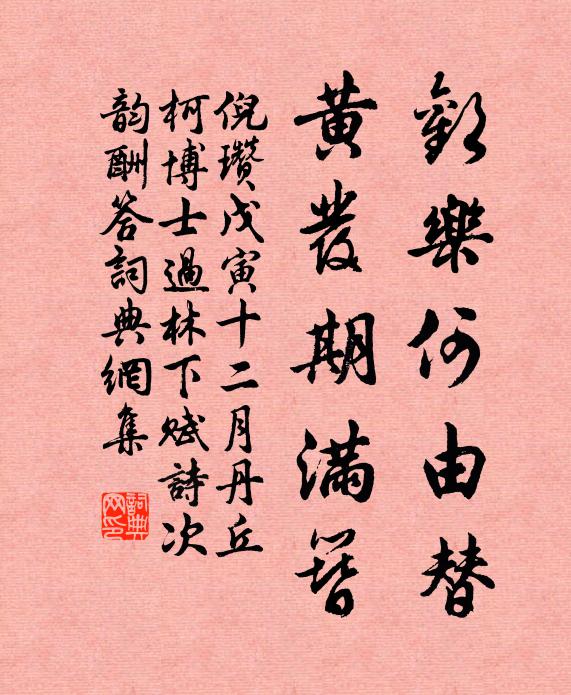 歡樂何由替
黃發期滿簪
倪瓚戊寅十二月丹丘
柯博士過林下賦詩次
韵酬答詞典網集
詞典
网印